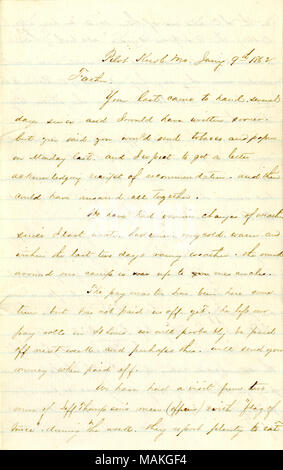 Pilot Knob Mo. Jany 9th 1862
Father,
Your last came to hand several
days since and I would have written sooner
but you said you would send tobacco and papers
on Monday last. and I expect to get a letter
acknowledging receipt of recommendation. and then
could have answered all together.
We have had various changes of weather
since I last wrote, had cold, warm and
the last two days rainy weather. The mud
around our camp is up to
The pay master has been here some
time but has not paid us off yet. he left our
pay rolls in St Louis. we will probably be paid
off next week and perhaps this. will send you
money when paid off.
We have had a visit from two
more of Jeff Thompsons men (officers) with "flag of
truce" during the week. they report plenty to eat
alamy
Image ID: MAKGF4
www.alamy.com